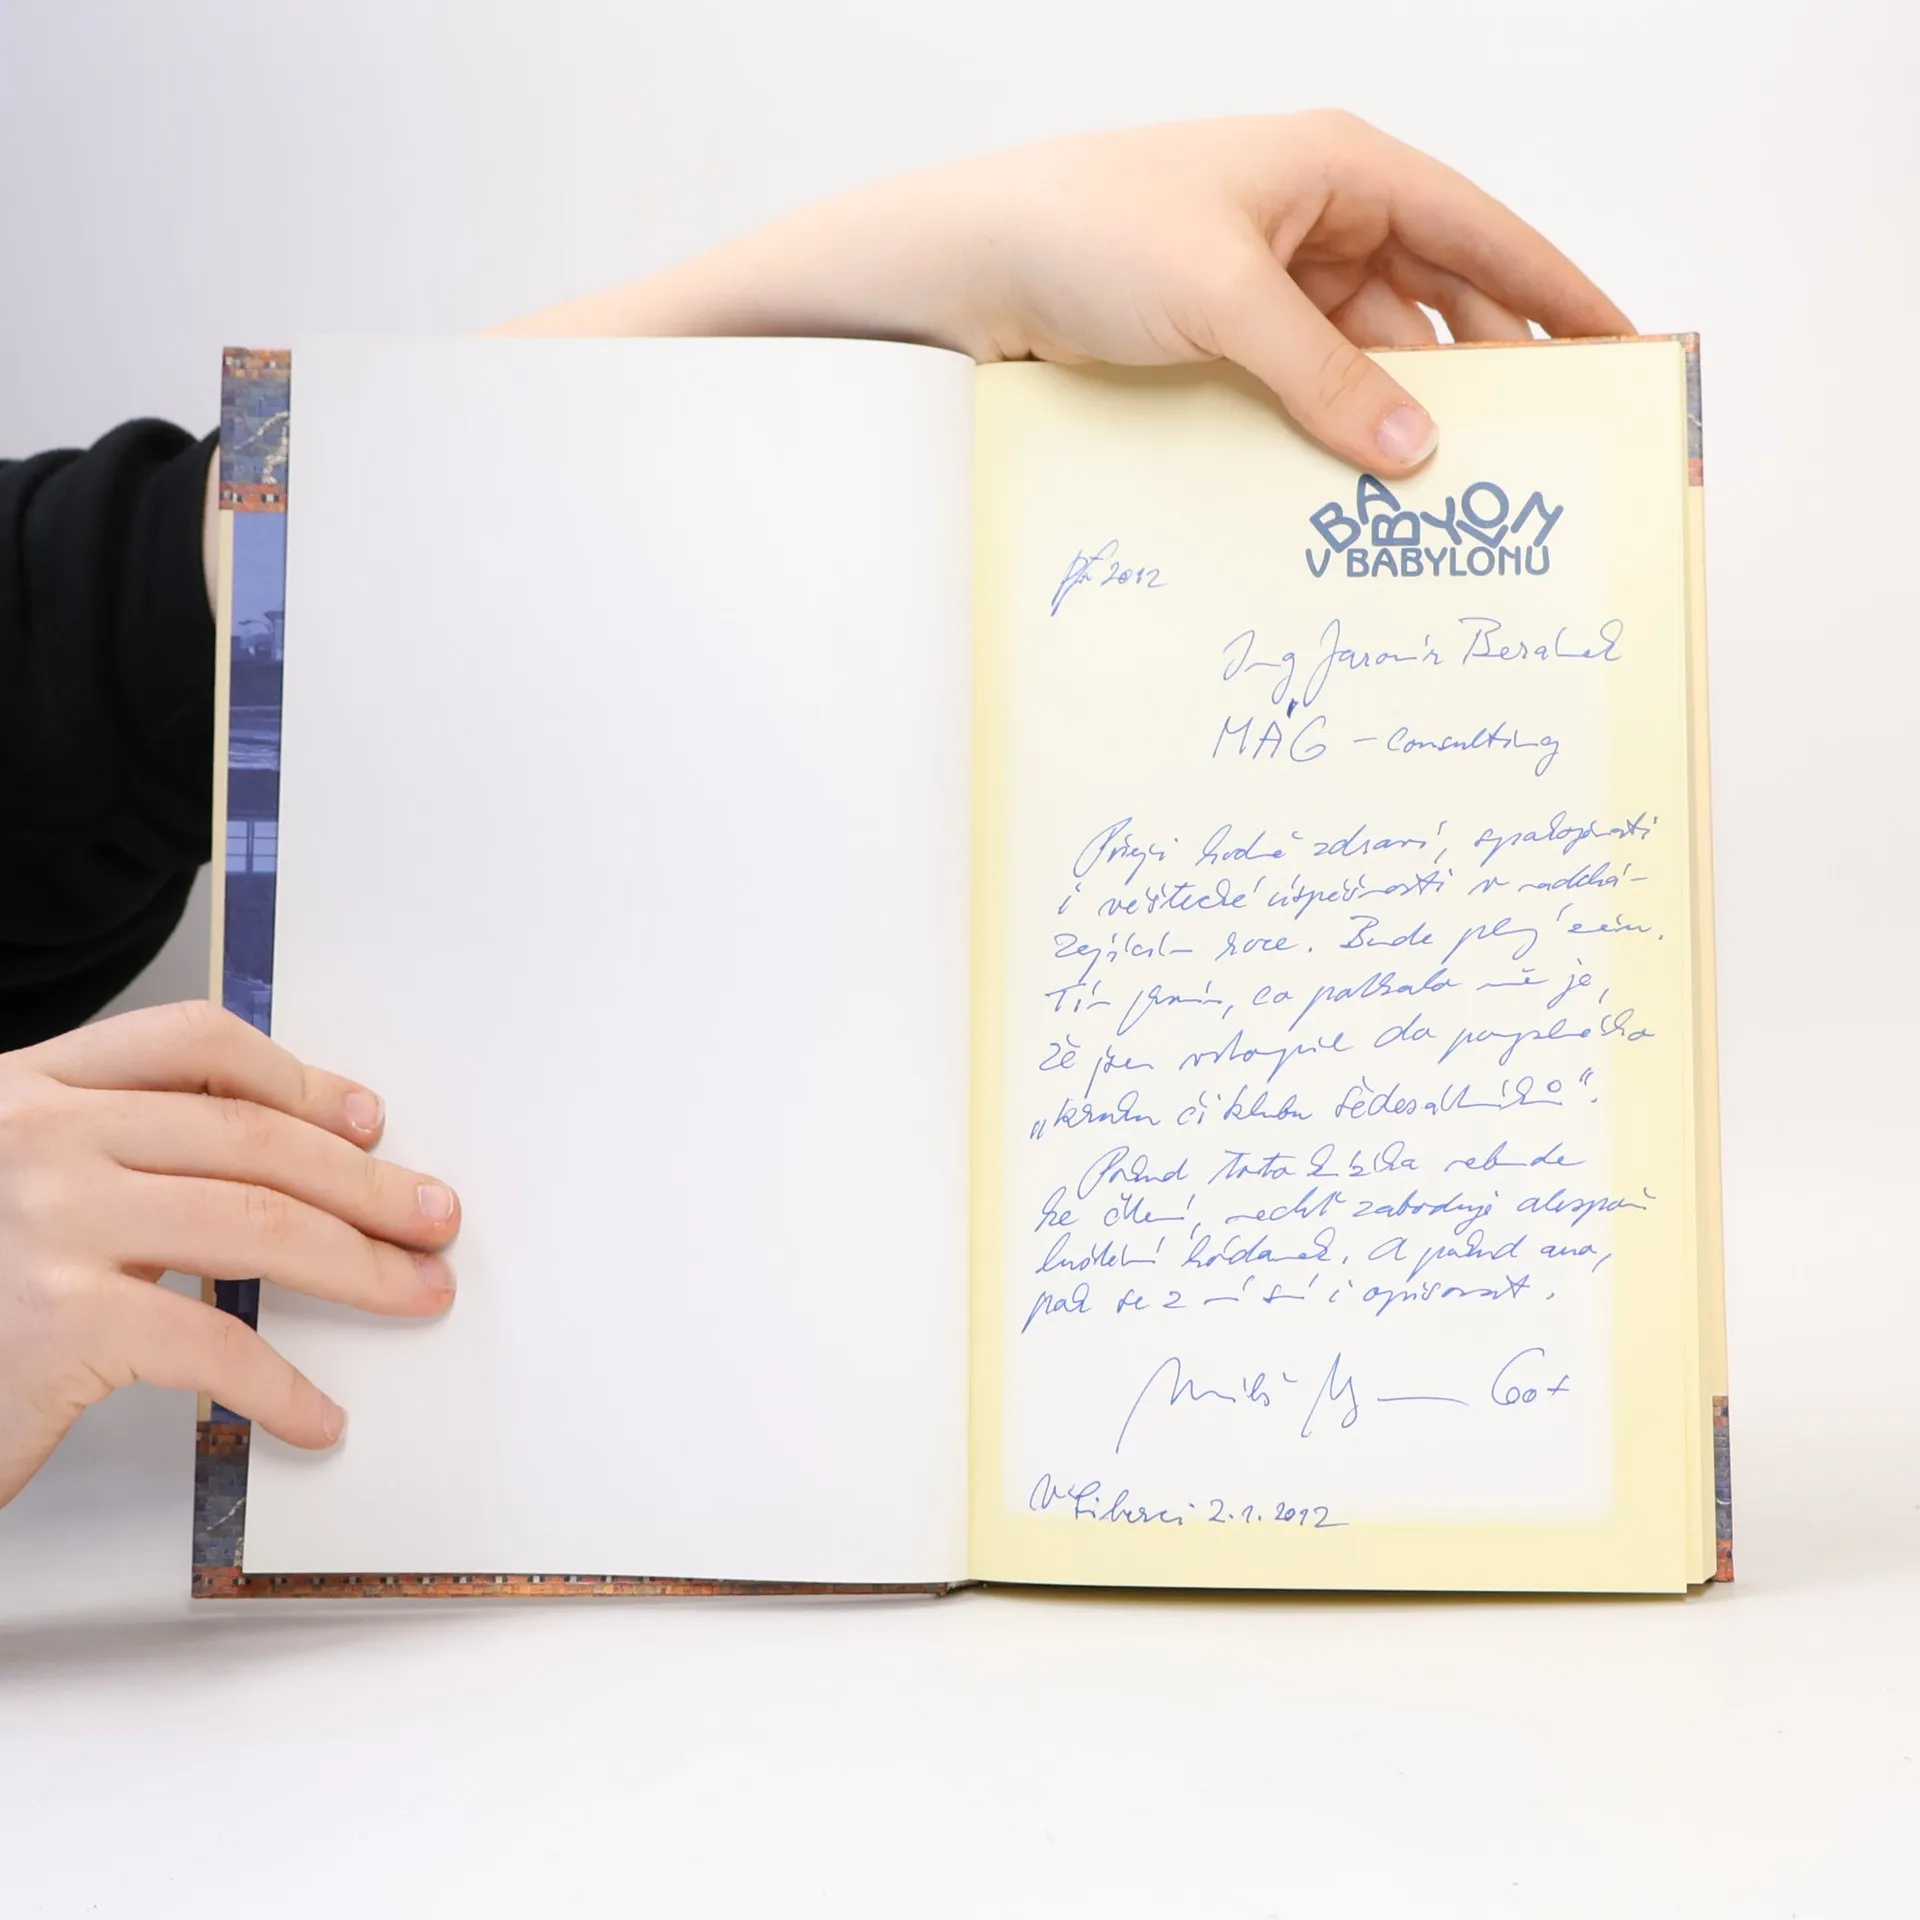 BABYLON
V BABYLONU
pf 2012
Ing Jaromír Beránek
MAG - consulting
Přeji hodně zdraví, spokojenosti
i veškeré úspěšnosti v nadchá-
zejícím roce. Bude plný změn.
Tím prvním, co potkalo mě je,
že jsem vstoupil do pomyslného
„kruhu či klubu šedesátníků“.
Pokud tato knížka nebude
ke čtení, nechť zaboduje alespoň
luštění hádanek. A pokud ano,
pak se z ní smí i opisovat.
Miloš 60+
V Liberci 2.1.2012